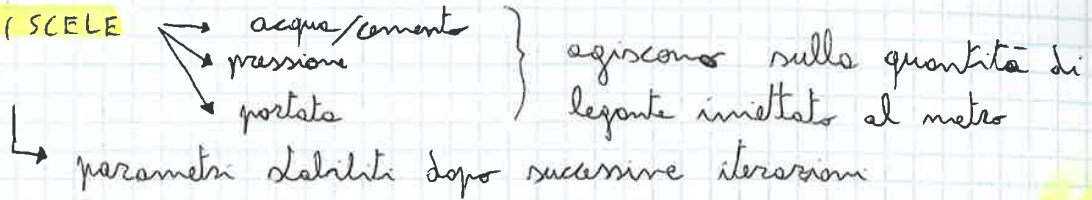 (SCELE → acqua/cemento
→ pressione
→ portata
} agiscono sulla quantità di
legante iniettato al metro
↳ parametri stabiliti dopo successive iterazioni